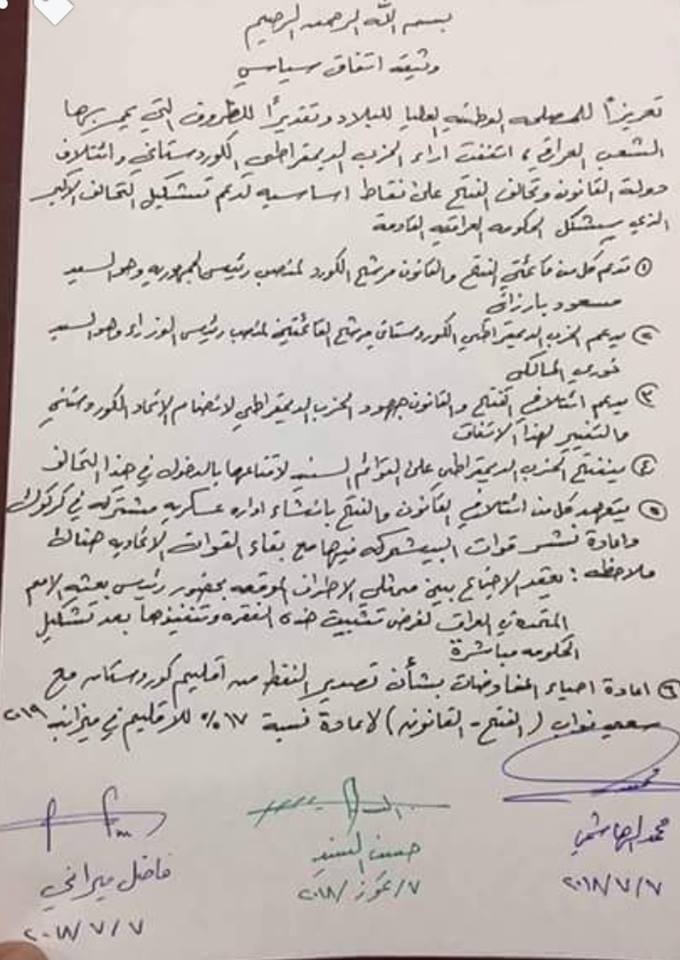 بسم الله الرحمن الرحيم
وثيقة اتفاق سياسي
تعزيزاً للمصلحه الوطنيه العليا للبلاد وتقديراً للظروف التي يمر بها
الشعب العراقي، اتفقت اراء الحزب الديمقراطي الكوردستاني وائتلاف
دولة القانون وتحالف الفتح على نقاط اساسيه لدعم تشكيل التحالف الاكبر
الذي سيشكل الحكومه العراقيه القادمة
① تدعم كل من قائمتي الفتح والقانون مرشح الكورد لمنصب رئيس الجمهوريه وهو السيد
مسعود بارزاني
② يدعم الحزب الديمقراطي الكوردستاني مرشح القائمتين لمنصب رئيس الوزراء وهو السيد
نوري المالكي
③ يدعم ائتلافي الفتح والقانون جهود الحزب الديمقراطي لانضمام الاتحاد الكوردستاني
والتغيير لهذا الاتفاق
④ ينفتح الحزب الديمقراطي على القوائم السنيه لاقناعها بالدخول في هذا التحالف
⑤ يتعهد كل من ائتلافي القانون والفتح بانشاء اداره عسكريه مشتركه في كركوك
واعادة نشر قوات البيشمركه فيها مع بقاء القوات الاتحاديه هناك
ملاحظه: يعقد الاجتماع بين ممثلي الاطراف الموقعه بحضور رئيس بعثه الامم
المتحده في العراق لغرض تثبيت هذه الفقره وتنفيذها بعد تشكيل
الحكومه مباشرة
⑥ اعادة احياء المفاوضات بشأن تصدير النفط من اقليم كوردستان مع
سعي نواب (الفتح - القانون) لاعادة نسبة ١٧٪ للاقليم في ميزانيه ٢٠١٩
محمد الهاشمي
٢٠١٨/٧/٧
حسن السنيد
٧/تموز/٢٠١٨
فاضل ميراني
٢٠١٨/٧/٧